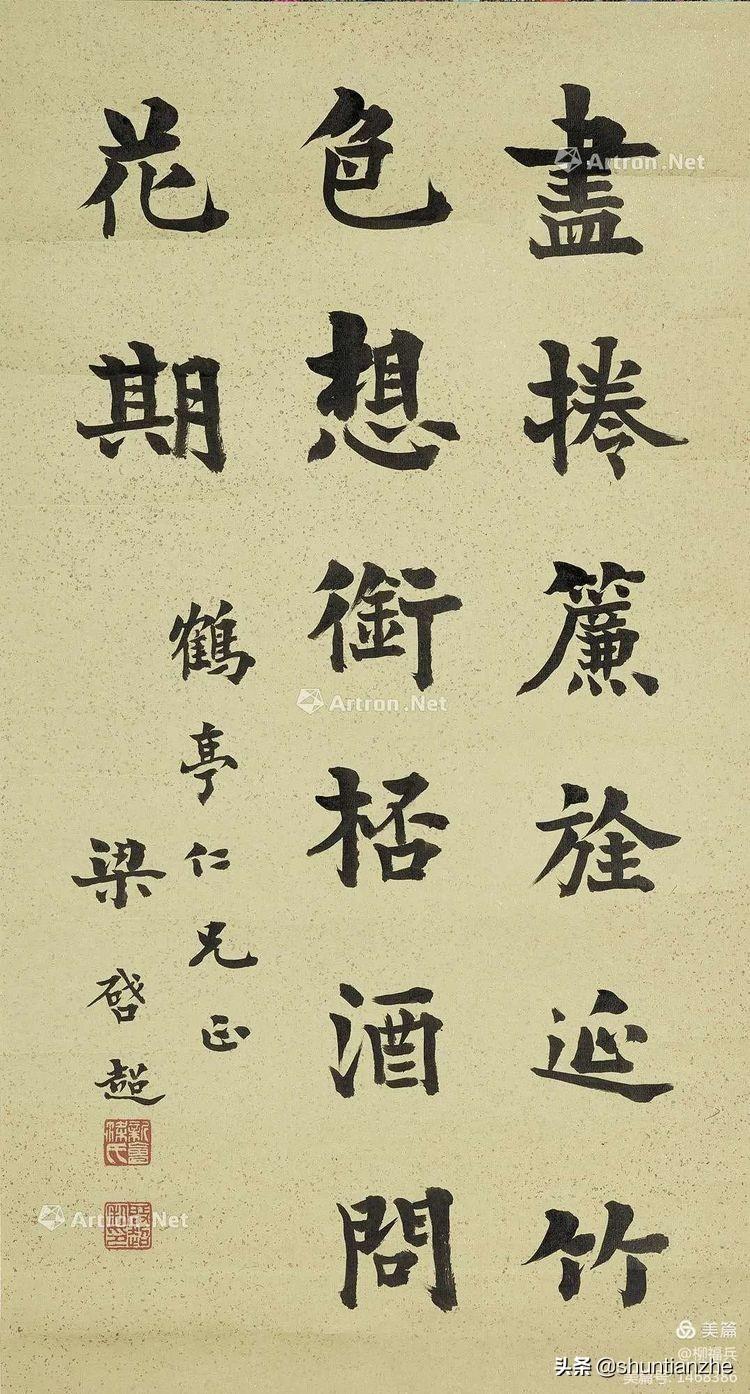 盡捲簾旌延竹
色想銜桮酒問
花期
鶴亭仁兄正
梁啓超
新會梁氏
Artron.Net
Artron.Net
Artron.Net
美篇
@柳福兵
美篇号:
头条 @shuntianzhe